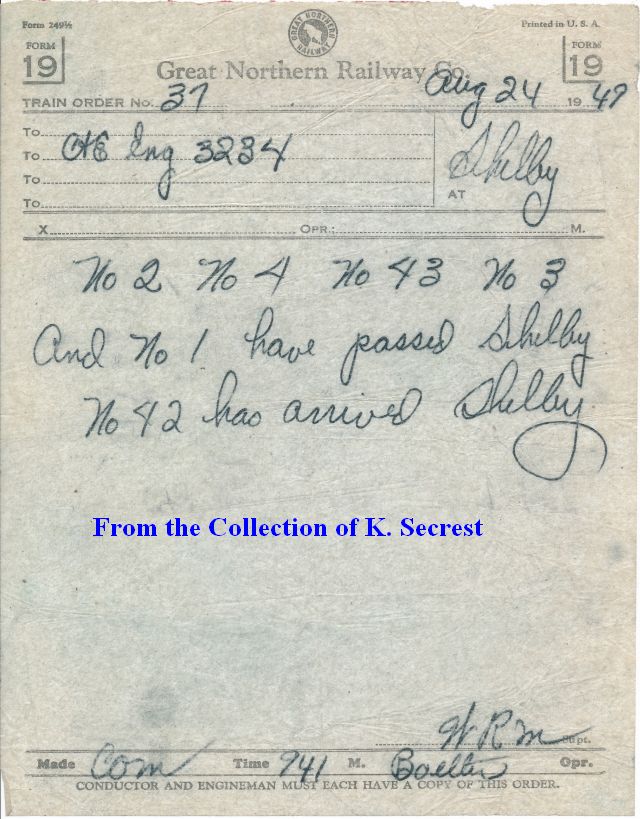 Form 249½
Printed in U. S. A.
GREAT NORTHERN RAILWAY
FORM 19
FORM 19
Great Northern Railway Co.
Aug 24 1947
TRAIN ORDER No. 37
To
To C&E Eng 3234
To
To
Shelby
AT
X OPR.: M.
No 2 No 4 No 43 No 3
And No 1 have passed Shelby
No 42 has arrived Shelby
From the Collection of K. Secrest
W R M Supt.
Made Com Time 941 M. Boelter Opr.
CONDUCTOR AND ENGINEMAN MUST EACH HAVE A COPY OF THIS ORDER.